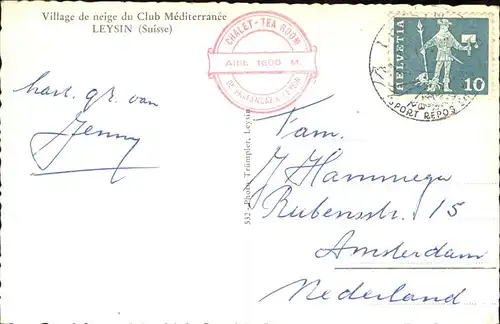 Village de neige du Club Méditerranée
LEYSIN (Suisse)
CHALET - TEA ROOM
Altit. 1600 M.
LEYSIN
HELVETIA
10
SPORT REPOS
hart. gr. van
Jenny
532 - Photo Trümpler, Leysin
Fam.
J Hammega
Rubensstr. 15
Amsterdam
Nederland